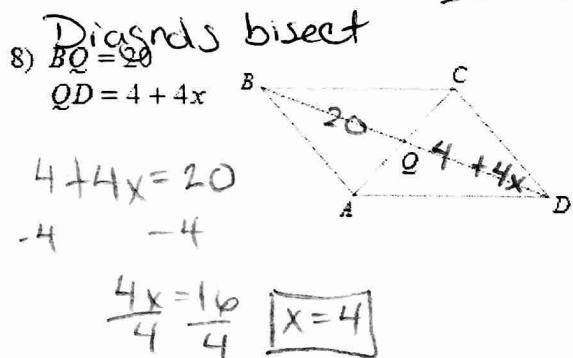 Diagnals bisect
8) BQ = 20
QD = 4 + 4x
B
C
20
Q
4 + 4x
A
D
4 + 4x = 20
-4 -4
4x = 16
4 4
x = 4